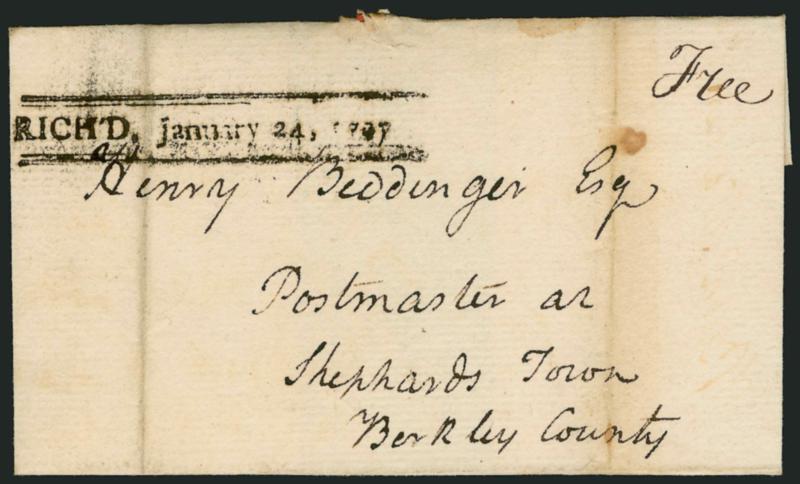 Free
RICH'D, January 24, 1797
Henry Beddinger Esq
Postmaster at
Shephards Town
Berkley County